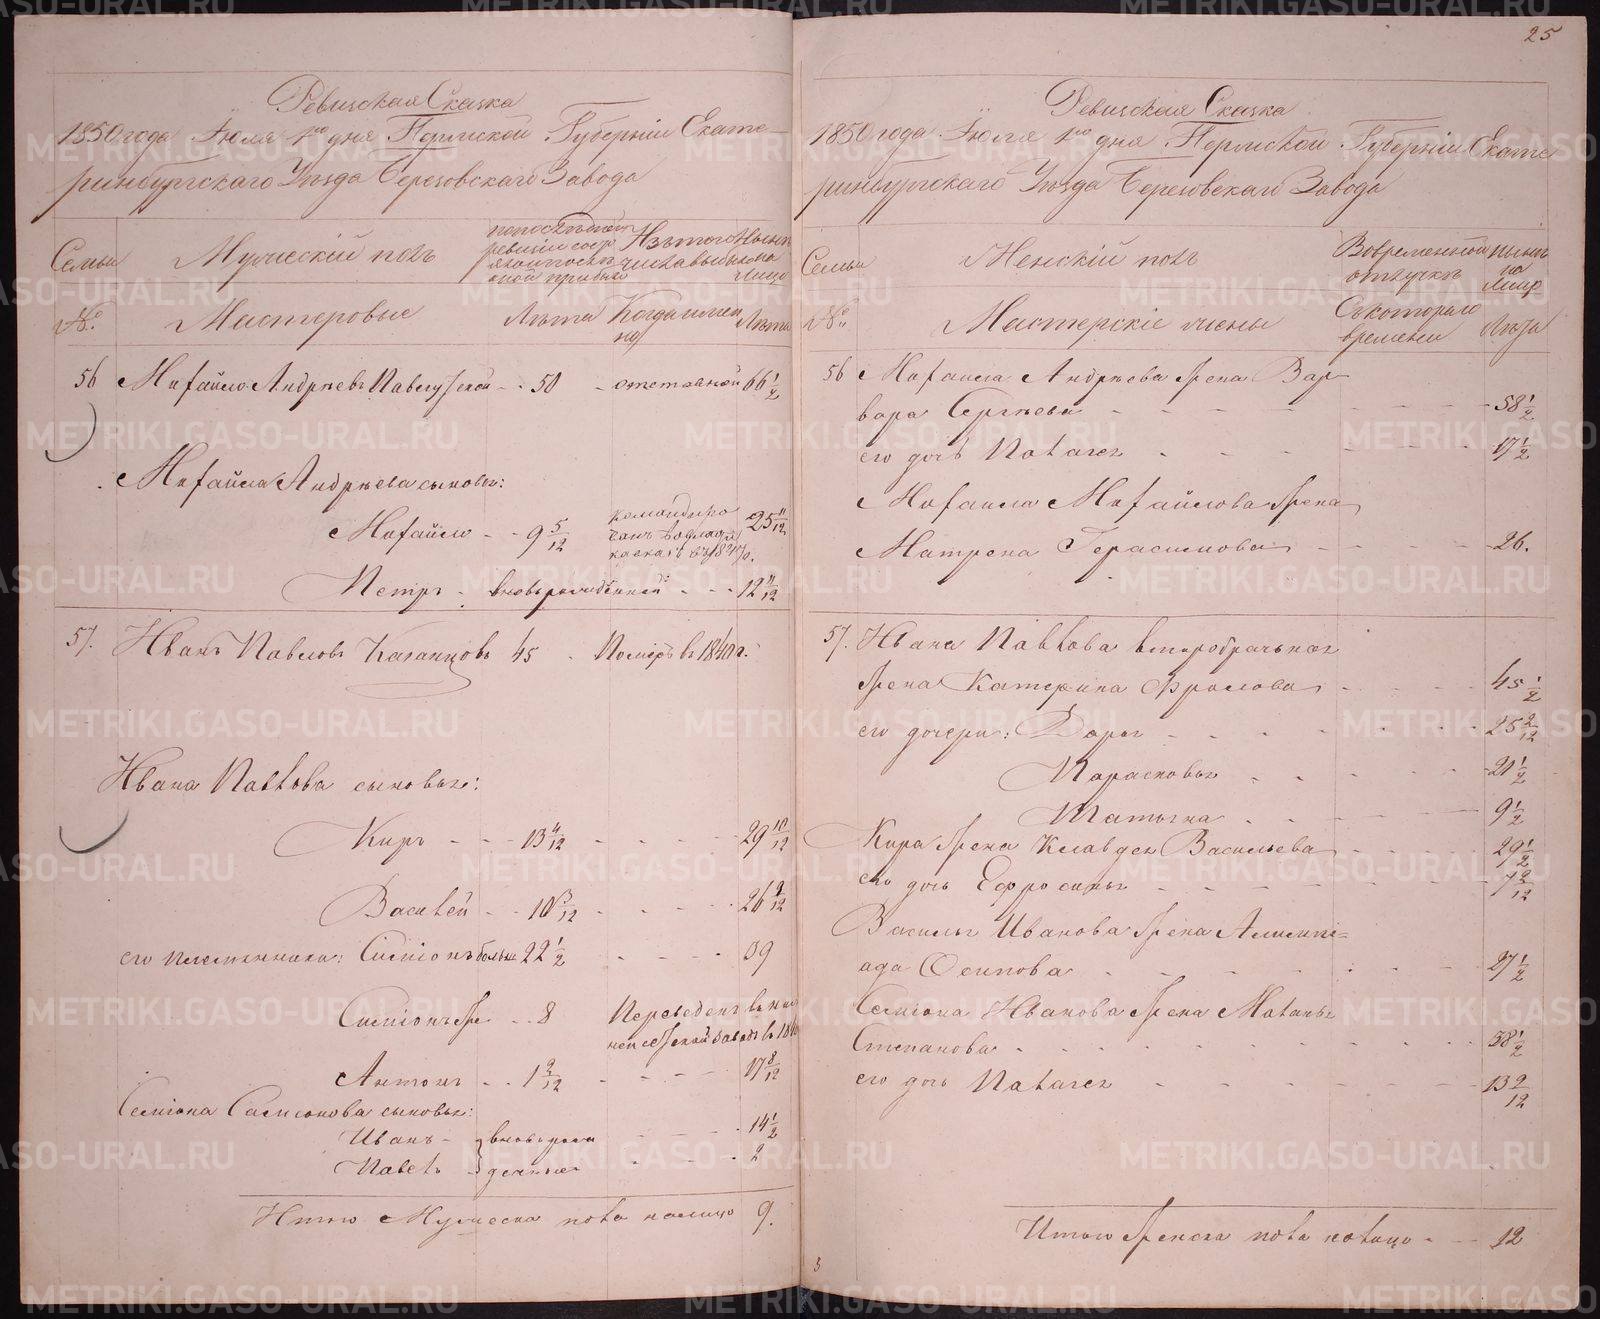 Ревизская Сказка
1850 года Июля 1го дня Пермской Губернiи Екате-
ринбургскаго Уѣзда Березовскаго Завода
Семьи
Мужескiй полъ
по последней
ревизiи состо
Изъ того
числа выбыло
Нынѣ
на
Лицо
№.
Мастеровые
Лѣта
Когда имен
но
Лѣта
56 Михайло Андрѣевъ 50 отставной 66 1/2
Михайла Андрѣева сыновья:
Михайло 9 5/12 командиро
ванъ 25 11/12
Петръ вновьрожденной 12 11/12
57. Иванъ Павловъ Казанцовъ 45 Померъ въ 1840 г.
Ивана Павлова сыновья:
Киръ 13 4/12 29 10/12
Василей 10 3/12 26 9/12
его племянники: Симiонъ больш 22 1/2 39
Симiонъ 8 Переведенъ въ
завод въ
Антонъ 1 2/12 17 8/12
Семiона сыновья:
Иванъ вновьрож 14 1/2
Павелъ денные 2
Итого Мужеска пола налицо 9.
25
Ревизская Сказка
1850 года Июля 1го дня Пермской Губернiи Екате
ринбургскаго Уѣзда Березовскаго Завода
Семьи
Женскiй полъ
Вовременной
отлучкѣ
нынѣ
на
Лицо
№.
Мастерскiе жены
Съкотораго
времени
Лѣта
56 Михаила Андрѣева жена Вар-
вара Сергѣева 58 1/2
его дочь Наталья 17 1/2
Михаила Михайлова жена
Матрена Герасимова 26.
57. Ивана Павлова второбрачная
жена Катерина Фролова 45 1/2
его дочери: Дарья 25 2/12
Парасковья 21 1/2
Татьяна 9 1/2
Кира жена Клавдея Васильева 29 1/2
его дочь Ефросинья 7 2/12
Василья Иванова жена Алимпi=
ада Осипова 27 1/2
Семiона Иванова жена Маланья
Степанова 38 1/2
его дочь Наталья 13 2/12
Итого женска пола налицо 12
3
METRIKI.GASO-URAL.RU